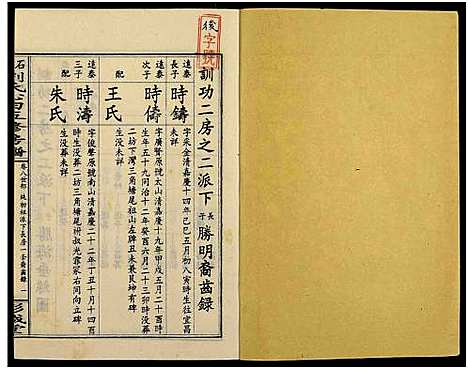 後字號
訓功二房之二派下長子勝明裔齒錄
遠泰長子
時鑄
字采金清嘉慶十四年己巳五月初八寅時生往宜昌
未詳
遠泰次子
時儔
字廣賢原號太山清嘉慶十九年甲戌五月二十酉時
生年五十九同治十二年癸酉六月二十三卯時沒葬
二坊下灣三角塘尾祖山左牌丑未兼艮坤有碑
配
王氏
生沒葬未詳
遠泰三子
時濤
字俊賢原號南山清嘉慶二十二年丁丑十月十四
時生沒葬二坊三角塘尾祔叔光霖冢右同向立碑
配
朱氏
生沒葬未詳
石
劉氏六甲五修房冊
卷八世部
彭城堂